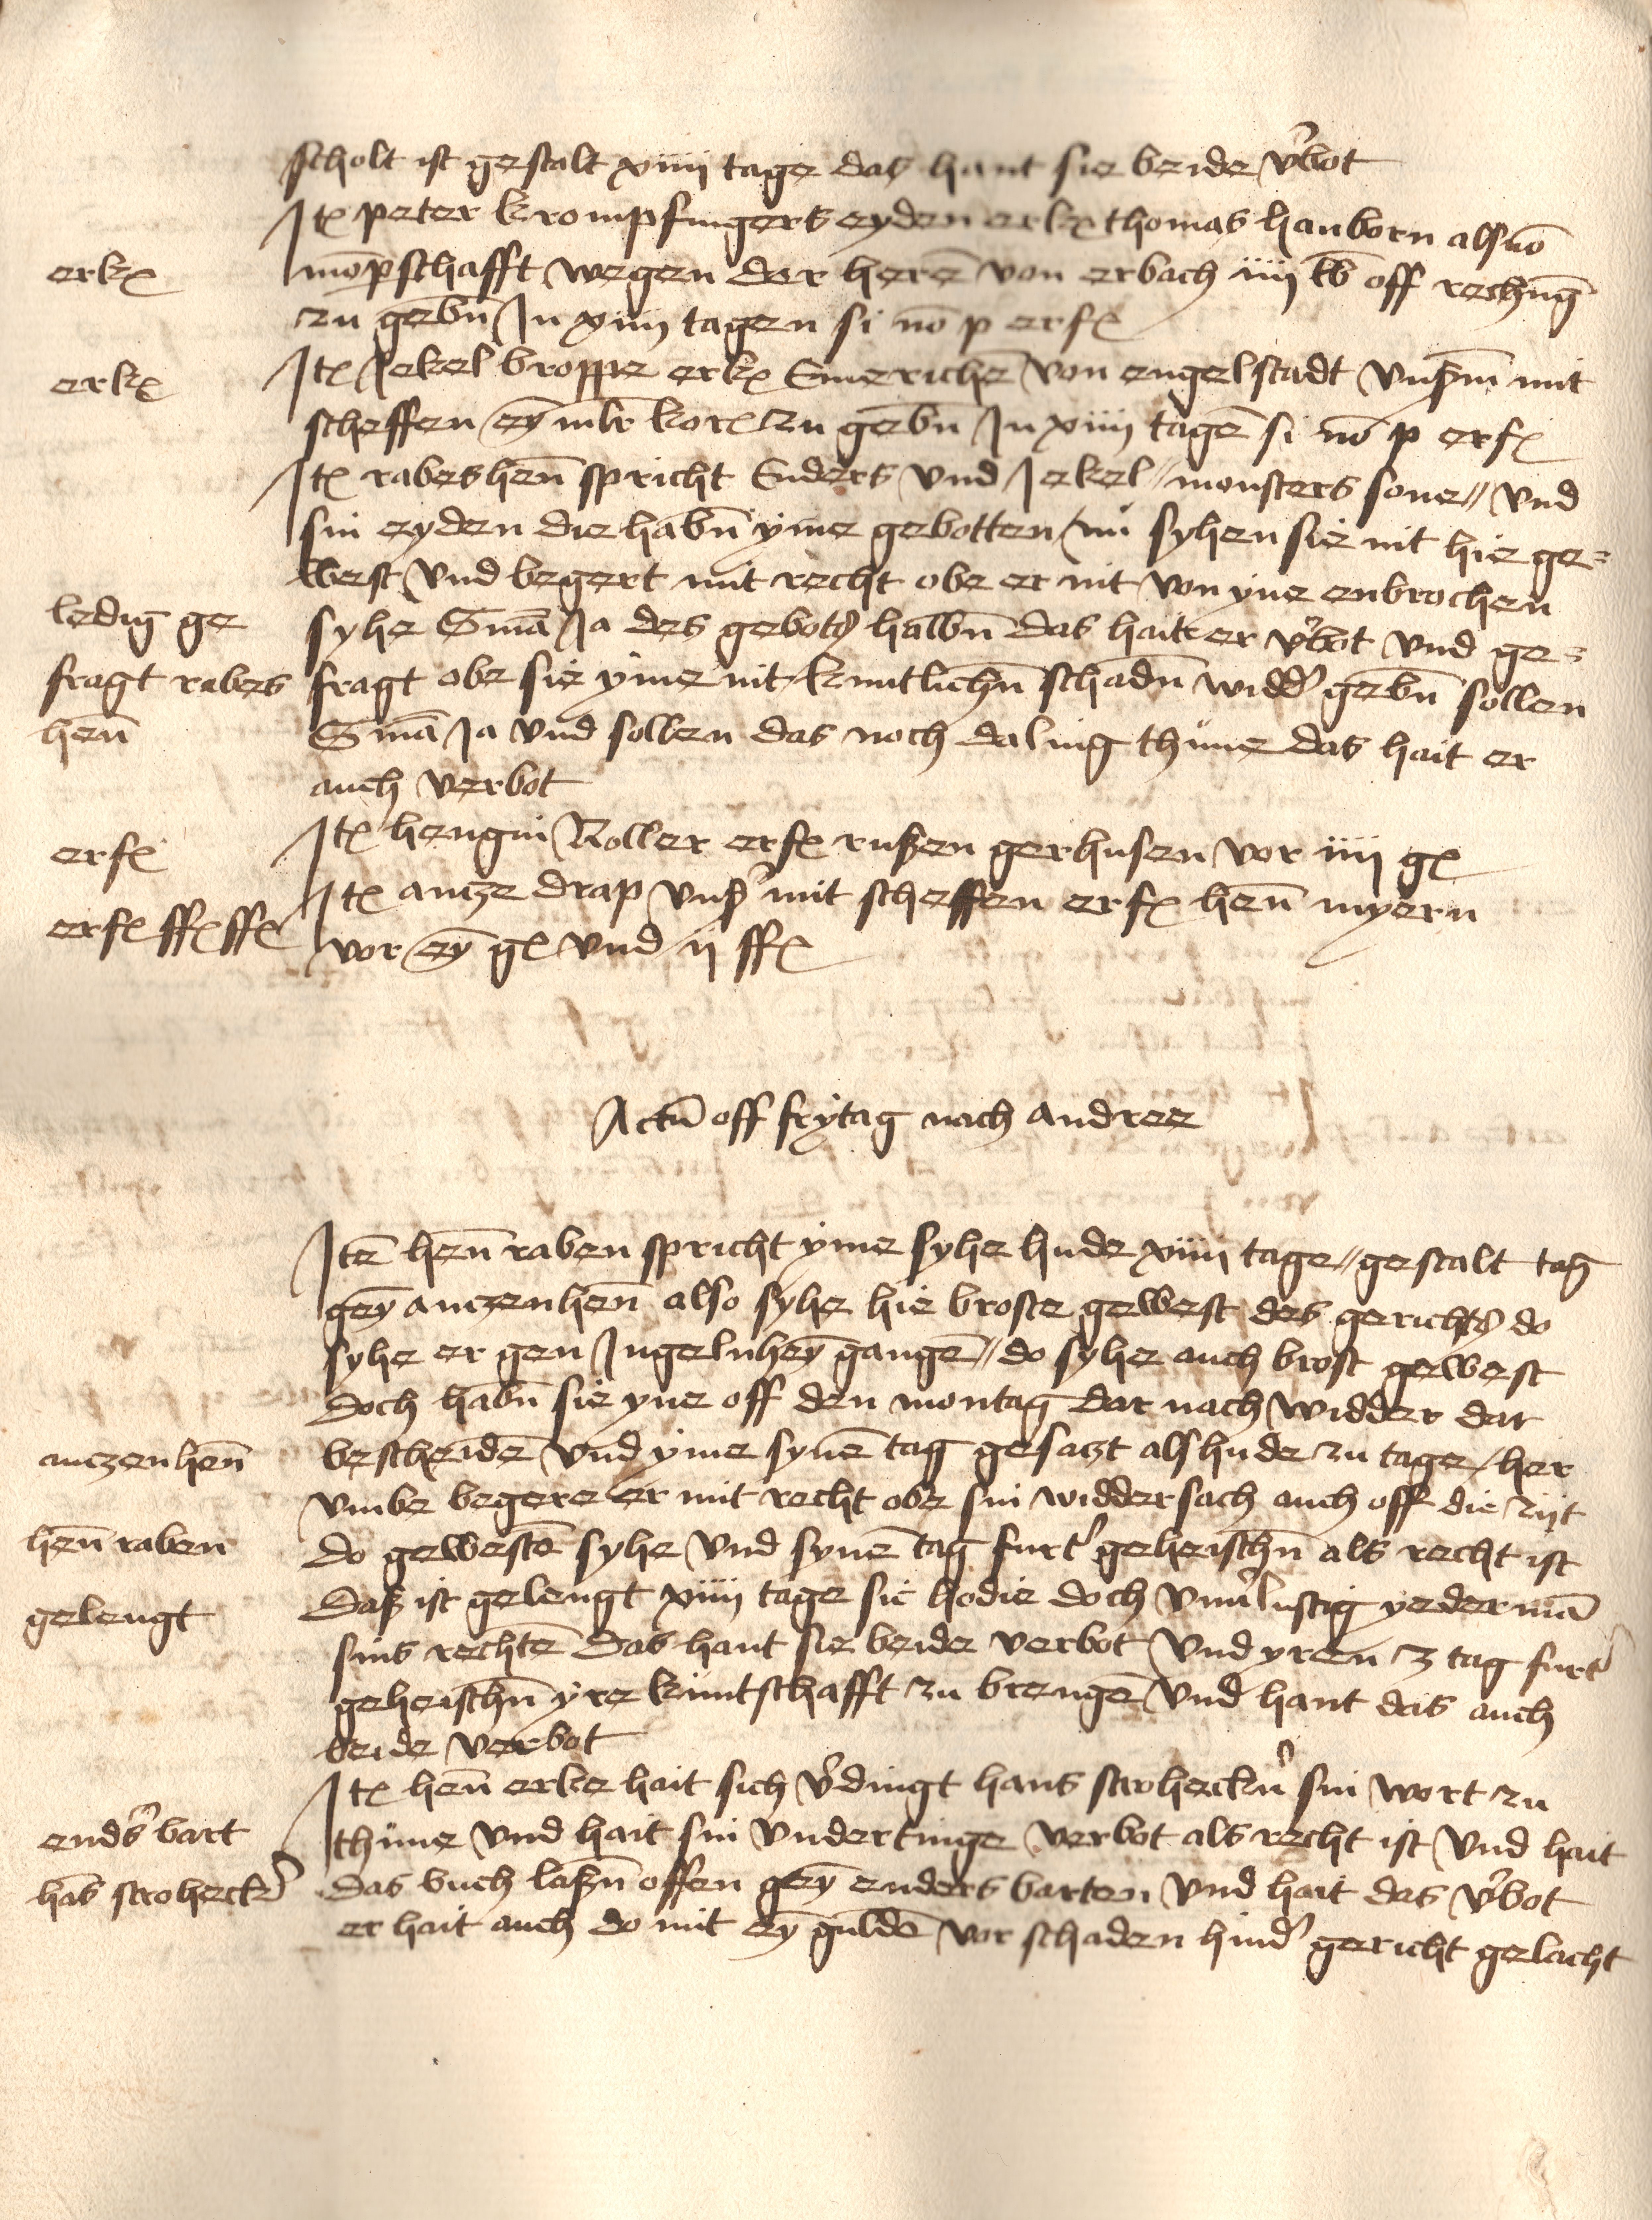 scholt ist gestalt xiiii tage das hant sie beide v'bot
Itē peter krompfingers eyden erkē thomas hanborn als vō
erkē
mōpschafft wegen der herē von erbach iiii lb off rechūg
zu gebn̄ In xiiii tagen si nō p erfē
erkē
Itē Jekel broppe erkē Emerichē von engelstadt vnß'm mit
scheffen eȳ mlr korē zu gebn̄ In xiiii tagē si nō p erfē
Itē rabeshen̄ spricht Enders vnd Jekel // monsters sone // vnd
sin eyden die habn̄ yme gebotten / nū syhen sie nit hie ge=
west vnd begert mit recht obe er nit von yne enbrochen
ledig ge
syhe Smā Ja des gebots halbn̄ das hait er v'bot vnd ge=
fragt rabes
fragt obe sie yme nit kuntlichn̄ schadn̄ widd' gebn̄ sollen
hen̄
Smā Ja vnd sollen das noch daling thune das hait er
auch verbot
erfē
Itē hengin Roller erfē rußen gerhusen vor iiii gē
Itē antze drap vnß' mit scheffen erfē hen̄ myern
erfē ffē ffē
vor eȳ gē vnd ii ffē
Actū off frytag nach andree
Itē hen̄ raben spricht yme syhe hude xiiii tage // gestalt tag
gey antzenhen̄ also syhe hie broste gewest des gerichts do
syhe er gen Ingelnheȳ gangē // do syhe auch brost gewest
doch habn̄ sie yne off den montag dar nach widder dar
antzenhen̄
bescheidē vnd yme synē tag gesatzt als hude zu tage / her
vmbe begere er mit recht obe sin widdersach auch off die zijt
hen̄ raben
do gewestē syhe vnd synē tag furt' geheischn̄ als recht ist
gelengt
Daß ist gelengt xiiii tage sic hodie doch vnu'lustig yedermā
sins rechtē das hant sie beide verbot vnd yren 3 tag furt'
geheischn̄ yre kuntschafft zu brengē vnd hant das auch
beide verbot
Itē hen̄ erke hait sich v'dingt hans stroheckn̄' sin wort zu
end's bart
thune vnd hait sin vnderdinge verbot als recht ist vnd hait
hās stroheck'
das buch laßn̄ offen gey enders barten vnd hait das v'bot
er hait auch do mit eȳ guldē vor schaden hind' gericht gelacht